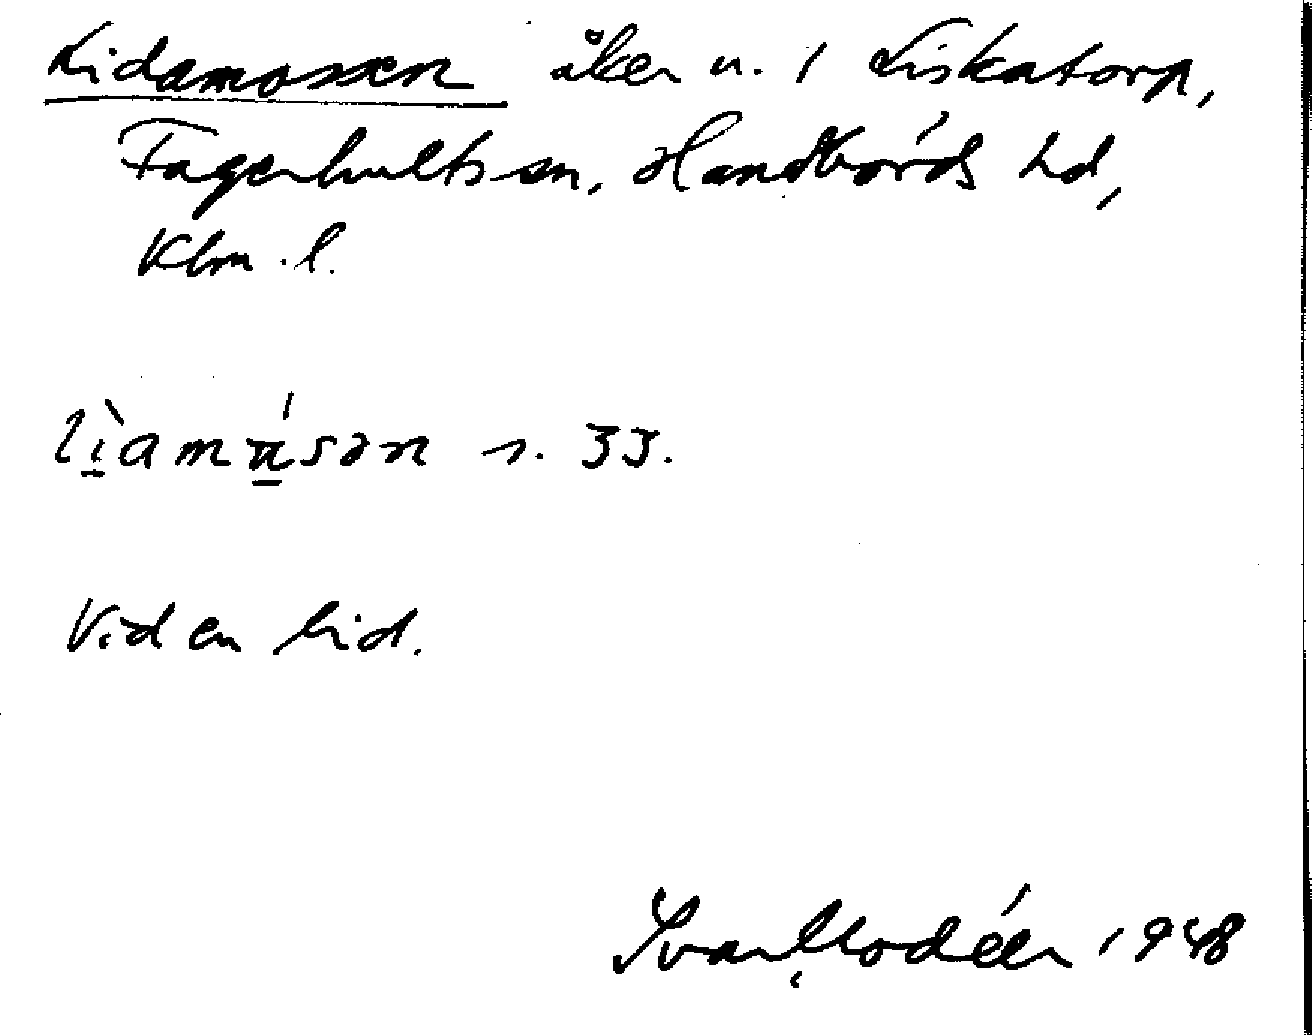 Lidamossen åker u. 1 Liskatorp,
Fagerhults sn, Handbörds hd,
Klm. l.
lìamúsən s. 33.
Vid en lid.
Ivar Modéer 1948